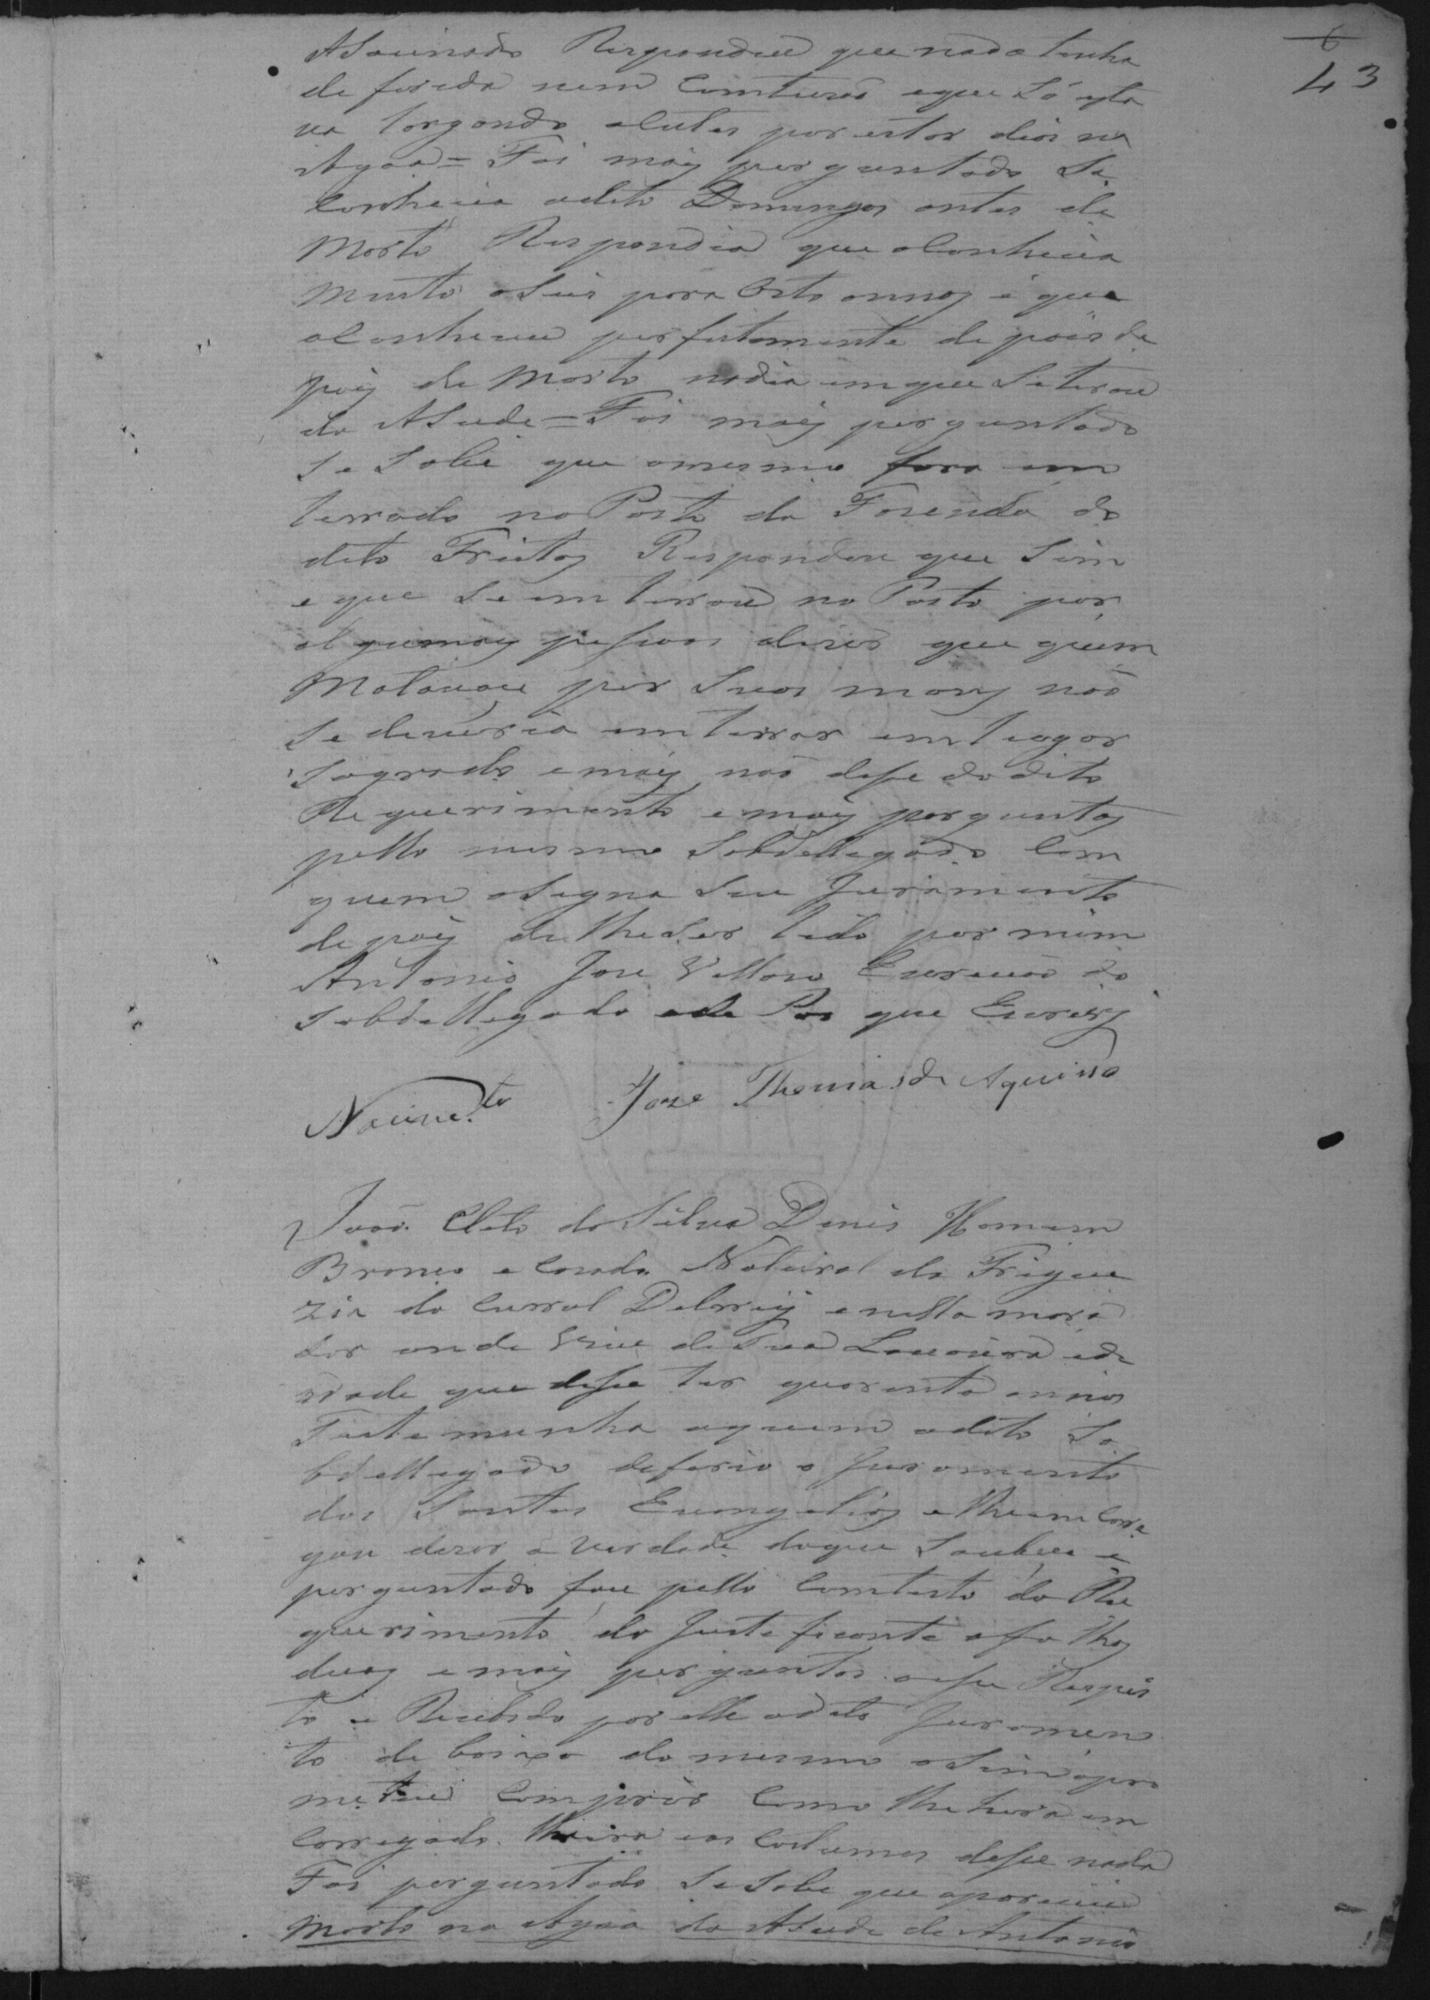 6
43
Asacinado Respondeu que nada tinha
de firida nem Comtuzaõ e que Só esta
va largando a Cutes por estar dias na
Agoa = Foi mais perguntado Se
Conhecia o dito Domingos antes de
Morto Respondeo que o Conhecia
Muito a Seis para Oito annos e que
o Conheceu perfeitamente depois de
pois de Morto no dia em que Se tirou
do Asude = Foi mais perguntado
Se Sabe que o mesmo fora em
terrado no Pasto da Fazenda do
dito Freitas Respondeu que Sim
e que Se enterrou no Pasto por
algumas pesoas dizer que quem
Matava-se por Suas maos naõ
Se deveria emterrar em Lugar
Sagrado e mais naõ dise do dito
Requerimento e mais perguntas
pello mesmo Sobdellegado Com
quem asigna Seu Juramento
depois de lhe Ser Lido por mim
Antonio Jose Vellozo Escrivaõ do
Sobdellegado e de Paz que Escrevy
Nacim.to Joze Thomas de Aquino
Joaõ Cleto da Silva Denis Homem
Branco e Cazado Natural da Frigue
zia do Curral Delrrey e nella mora
dor onde Vive de Sua Lavoura e de
idade que dise ter quarenta annos
Testemunha a quem o dito So
bdellegado deferio o Juramento
dos Santos Evangelios e lhe em Carre
gou dizer a verdade do que Soubese e
perguntado fou pello Comteudo do Re
querimento do Justeficante a folhas
duas e mais perguntas a ese Respei
to e Recebido por elle o dito Juramen
to de baixo do mesmo asim o pro
meteu Comprir Como lhe hera em
Carregado. e aos Custumes dise nada
Foi perguntado Se Sabe que apareceu
Morto na Agoa do Asude de Antonio